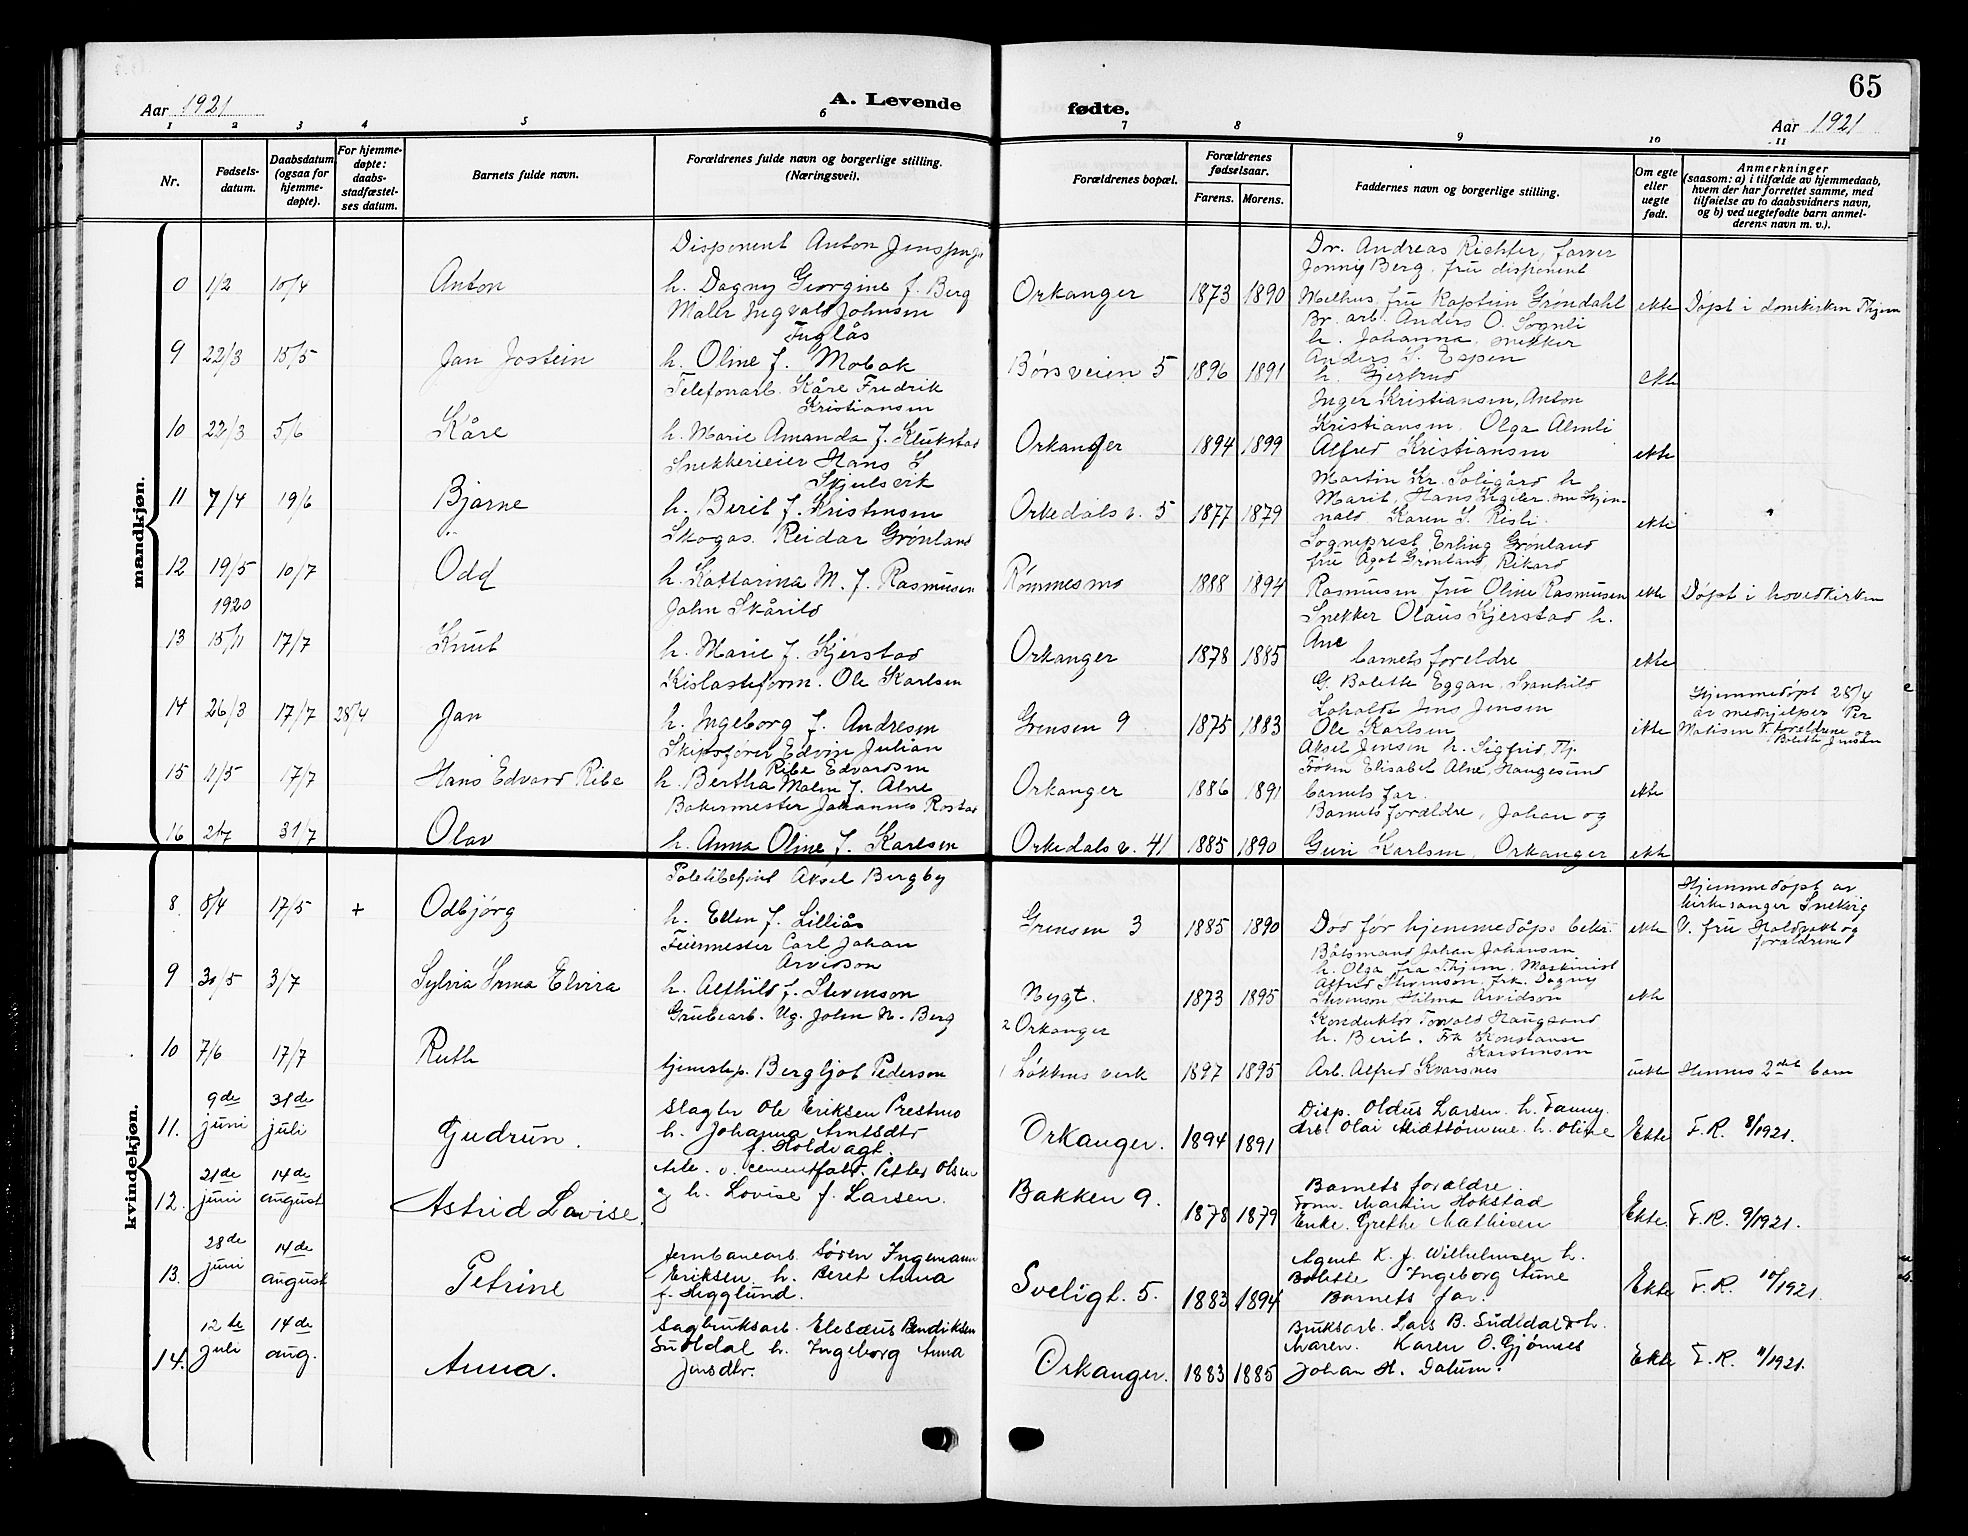 65
Aar 1921
A. Levende
fødte.
Aar 1921
1 2 3 4 5 6 7 8 9 10 11
Nr.
Fødsels-
datum.
Daabsdatum
(ogsaa for
hjemme-
døpte).
For hjemme-
døpte:
daabs-
stadfæstel-
ses datum.
Barnets fulde navn.
Forældrenes fulde navn og borgerlige stilling.
(Næringsvei).
Forældrenes bopæl.
Forældrenes
fødselsaar.
Farens. Morens.
Faddernes navn og borgerlige stilling.
Om egte
eller
uegte
født.
Anmerkninger
(saasom: a) i tilfælde av hjemmedaab,
hvem der har forrettet samme, med
tilføielse av to daabsvidners navn,
og b) ved uegtefødte barn anmel-
derens navn m. v.).
mandkjøn.
0 1/2 10/4 Anton
Disponent Anton
h. Dagny Georgine f. Berg
Orkanger 1873 1890
Dr. Andreas Richter, farver
Jonny Berg, fru disponent
Melhus, fru Kaptein Grøndahl
ekte Døpt i domkirken Thjem
9 22/3 15/5 Jan Jostein
Maler Ingvald Johnsen
Fuglås
h. Oline f. Mobak
Børsveien 5 1896 1891
Br. arb. Anders O. Sognli
h. Johanna, snekker
Anders S. Espen
h. Gjertrud
ekte
10 22/3 5/6 Kåre
Telefonarb. Kåre Fredrik
Kristiansen
h. Marie Amanda f. Klukstad
Orkanger 1894 1899
Inger Kristiansen, Anton
Kristiansen, Olga Almli
Alfred Kristiansen
ekte
11 7/4 19/6 Bjarne
Snekkerieier Hans S
Skjulsvik
h. Berit f. Kristensen
Orkedals v. 5 1877 1879
Martin Kr. Soligård h
Marit, Hans
Karen S. Risli.
ekte
12 19/5 10/7 Odd
Skogas. Reidar Grønland
h. Kattarina M. f. Rasmussen
Rømmesmo 1888 1894
Sogneprest Erling Grønland
fru Ågot Grønland, Rikard
Rasmussen fru Oline Rasmussen
ekte Døpt i hovedkirken
1920
13 15/11 17/7 Knut
John Skårild
h. Marie f. Kjerstad
Orkanger 1878 1885
Snekker Olaus Kjerstad h.
Ane
barnets foreldre
ekte
14 26/3 17/7 28/4 Jan
Kislasteform. Ole Karlsen
h. Ingeborg f. Andresen
Grensen 9 1875 1883
G. Bolette Eggan, Svanhild
Jens Jensen
Ole Karlsen
ekte
Hjemmedøpt 28/4
av medhjelper Per
Matisen V. foreldrene og
Bolette Jensen
15 11/5 17/7 Hans Edvard Ribe
Skipsfører Edvin Julian
Ribe Edvardsen
h. Bertha Malen f. Alne
Orkanger 1886 1891
Aksel Jensen h. Sigfrid, Thj.
Frøken Elisabet Alne, Haugesund
barnets far.
ekte
16 31/7 Olav
Bakermester Johannes Rostad
h. Anna Oline f. Karlsen
Orkedals v. 41 1885 1890
Barnets forældre, Johan og
Guri Karlsen, Orkanger
ekte
kvindekjøn.
8 8/4 17/5 + Odbjørg
Politibetjent Aksel Bergby
h. Ellen f. Lilliås
Grensen 3 1885 1890
Død før hjemmedåps bekr.
ekte
Hjemmedøpt av
kirkesanger Snekvig
V. fru Holdvakt og
forældrene
9 30/5 3/7 Sylvia Irma Elvira
Feiermester Carl Johan
Arvidson
h. Alfhild f. Stevenson
Nygt. 1873 1895
Båtsmand Johan Johansen
h. Olga fra Thjem, Maskinist
Alfred Stevenson, frk. Dagny
Stevenson Hilma Arvidson
ekte
10 7/6 17/7 Ruth
Grubearb. Ug. John N. Berg
tjenestep. Bergljot Pederson
2 Orkanger
1 Løkkens verk 1897 1895
Konduktør Torvald Haugsand
h. Berit. Frk Konstanse
Karstensen
Arb. Alfred Kvarsnes
uekte Hennes 2det barn
11. 9de juni 31de juli Gudrun.
Slagter Ole Eriksen Prestmo
h. Johanna Arntsdtr
f. Holdvagt.
Orkanger. 1894 1891
Disp. Oldus Larsen. h. Fanny.
Arb. Olai h. Oline
Ekte F.R. 8/1921.
12. 21de juni 14de august Astrid Lovise.
Arb. v. cementfabr. Petter Olsen
og h. Lovise f. Larsen.
Bakken 9. 1878 1879
Barnets forældre.
Form. Martin Hokstad
Enke. Grethe Mathisen
Ekte F.R. 9/1921.
13. 28de juni 14de august Petrine
Jernbanearb. Søren Ingemann
Eriksen h. Beret Anna
f. Hegglund.
Sveligt. 5. 1883 1894
Agent K. J. Wilhelmsen h.
Bolette Ingeborg Aune
Barnets far.
Ekte F.R. 10/1921.
14. 12te juli 14de aug. Anna.
Sagbruksarb. Elesæus Bendiksen
Suldal h. Ingeborg Anna
Jensdtr.
Orkanger. 1883 1885
Bruksarb. Lars B. h.
Maren. Karen O. Gjønnes
Johan H. Dalum.
Ekte F.R. 11/1921.